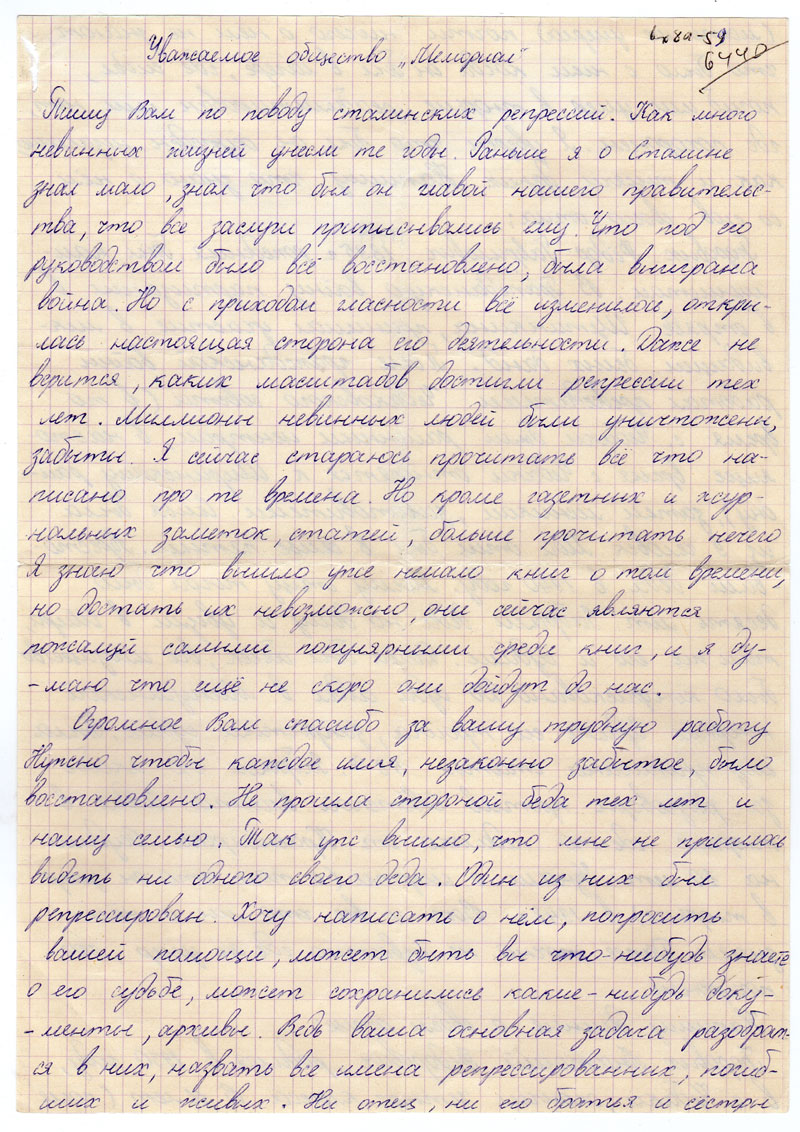 вх 8а-59
6440
Уважаемое общество „Мемориал"
Пишу Вам по поводу сталинских репрессий. Как много
невинных жизней унесли те годы. Раньше я о Сталине
знал мало, знал что был он главой нашего правительс-
тва, что все заслуги приписывались ему. Что под его
руководством было всё восстановлено, была выиграна
война. Но с приходом гласности всё изменилось, откры-
лась настоящая сторона его деятельности. Даже не
верится, каких масштабов достигли репрессии тех
лет. Миллионы невинных людей были уничтожены,
забыты. Я сейчас стараюсь прочитать всё что на-
писано про те времена. Но кроме газетных и жур-
нальных заметок, статей, больше прочитать нечего
Я знаю что вышло уже немало книг о том времени,
но достать их невозможно, они сейчас являются
пожалуй самыми популярными среди книг, и я ду-
-маю что ещё не скоро они дойдут до нас.
Огромное Вам спасибо за вашу трудную работу
Нужно чтобы каждое имя, незаконно забытое, было
восстановлено. Не прошла стороной беда тех лет и
нашу семью. Так уж вышло, что мне не пришлось
видеть ни одного своего деда. Один из них был
репрессирован. Хочу написать о нём, попросить
вашей помощи, может быть вы что-нибудь знаете
о его судьбе, может сохранились какие-нибудь доку-
-менты, архивы. Ведь ваша основная задача разобрат-
ся в них, назвать все имена репрессированных, погиб-
ших и живых. Ни отец, ни его братья и сёстры